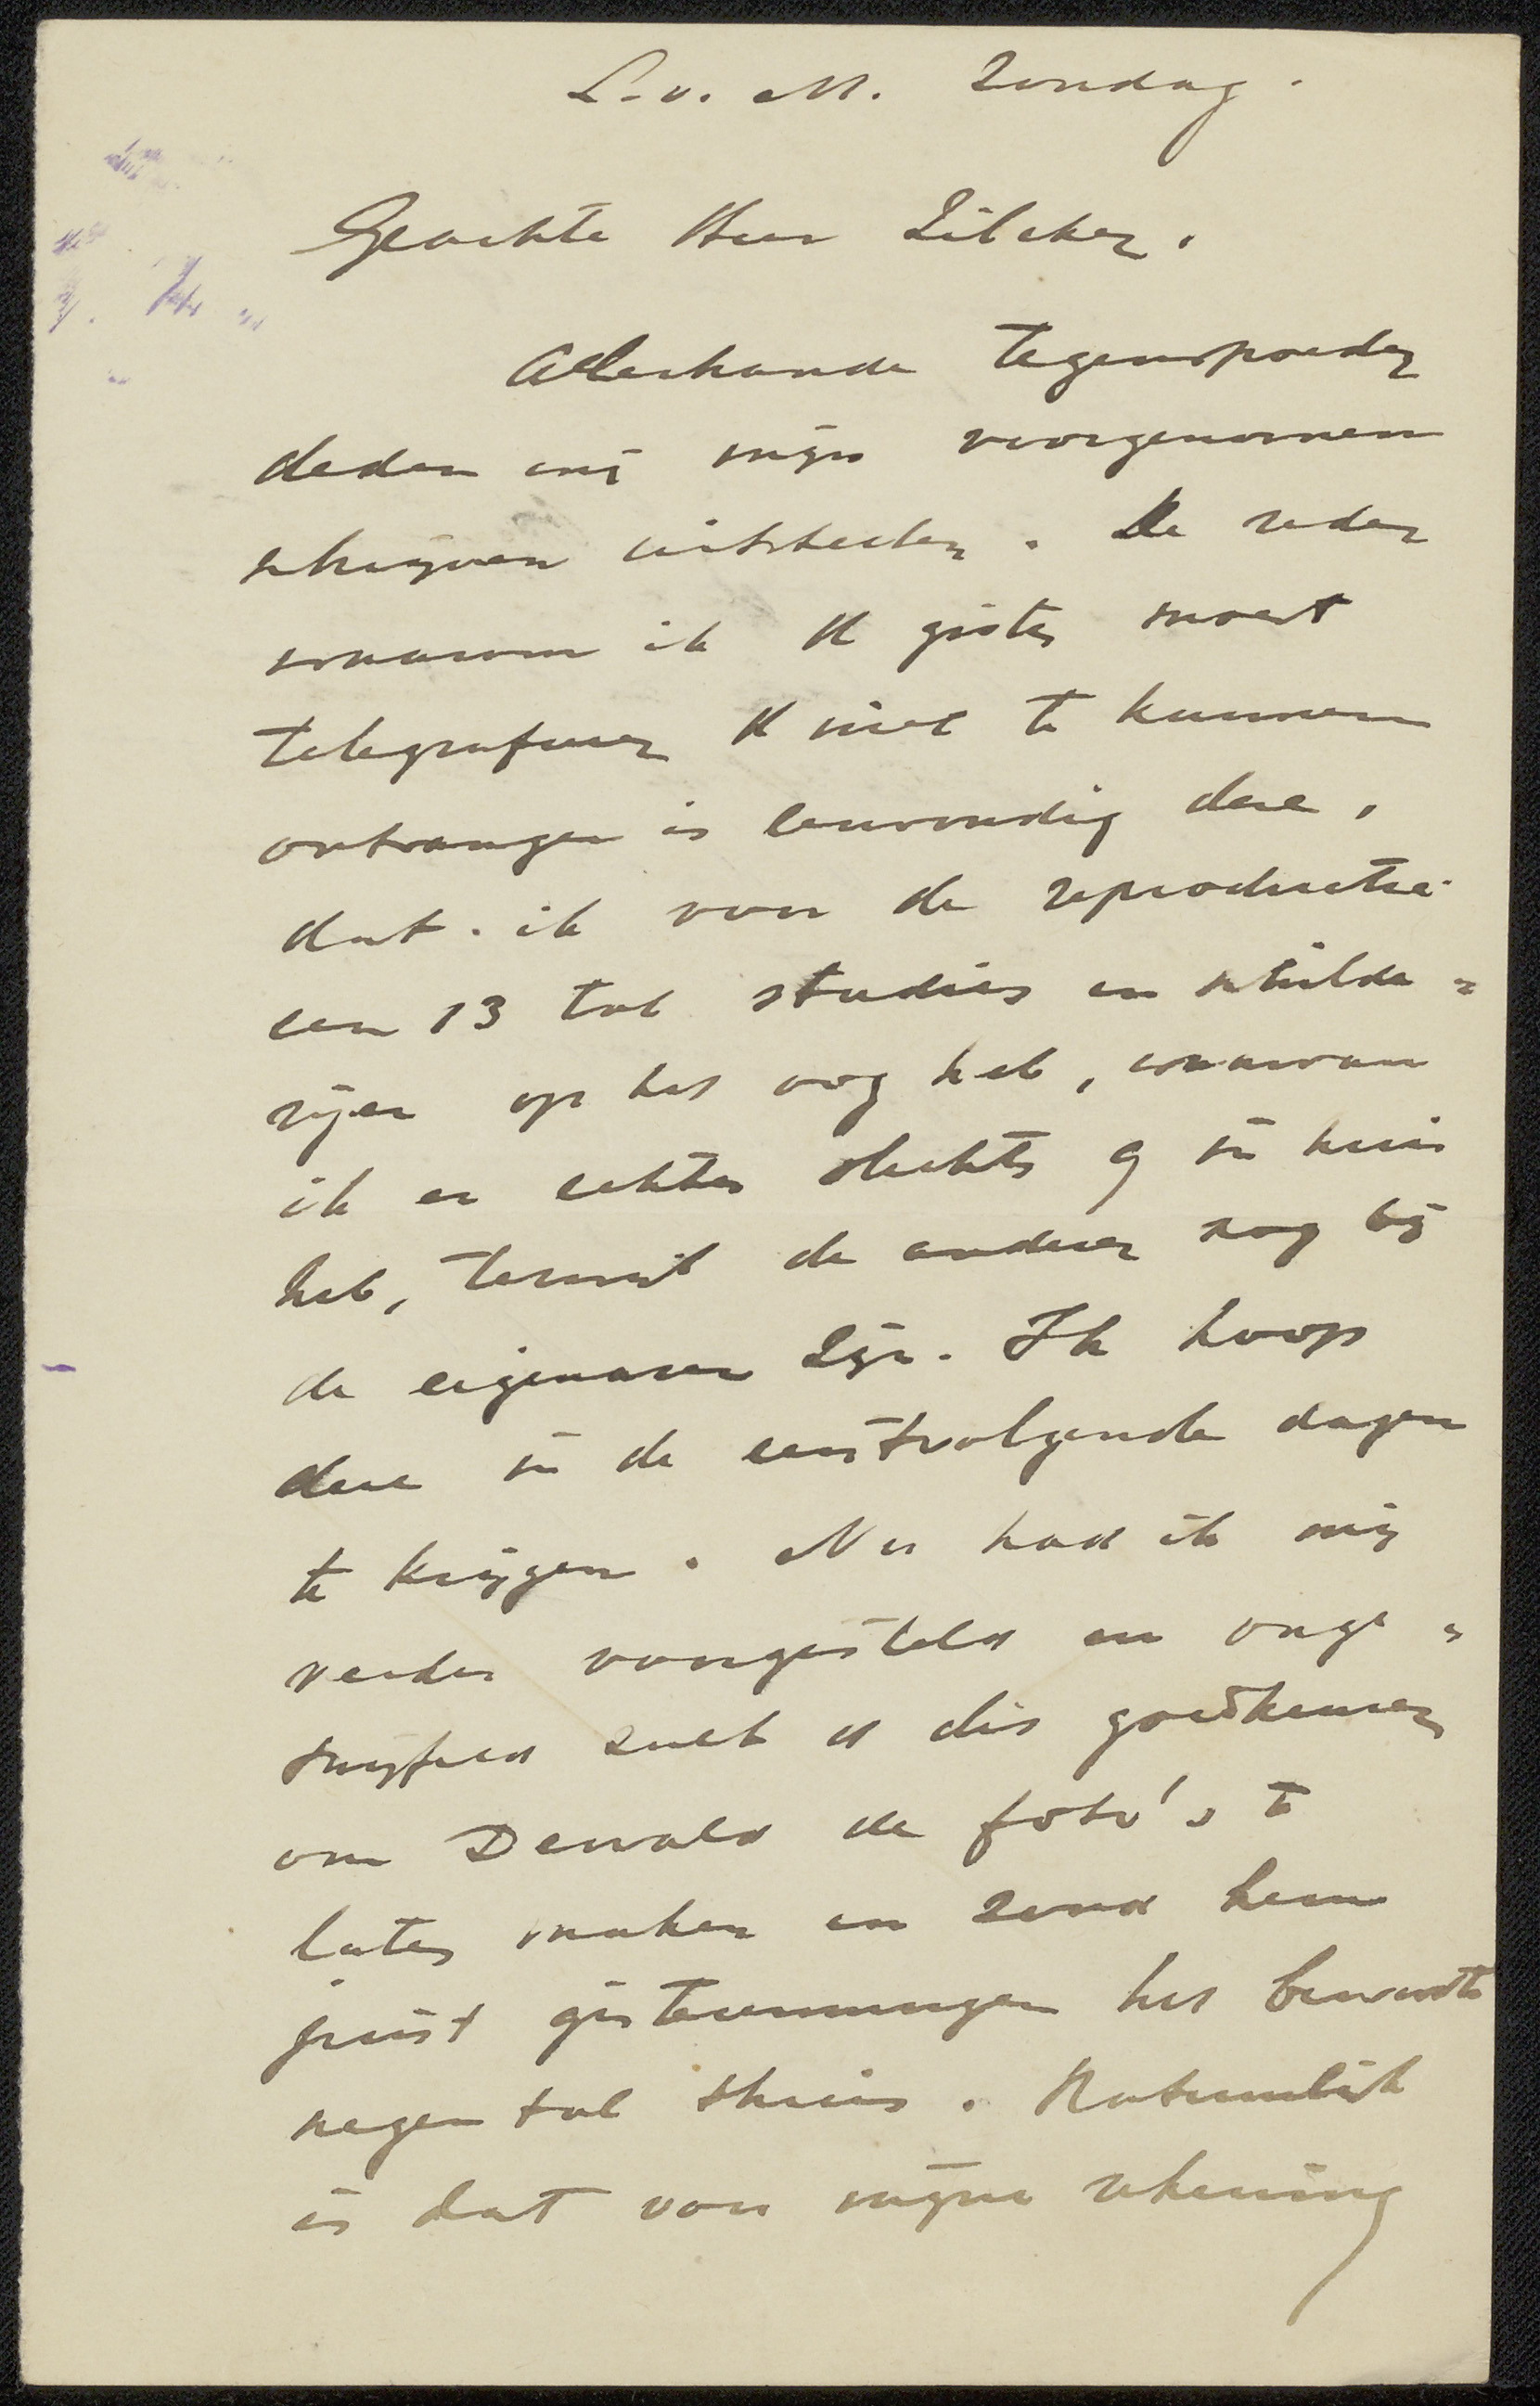 L. v. M. Zondag.
Geachte Heer Zilcken.
Allerhande tegenspoeden
deden mij mijn voorgenomen
schrijven uitstellen. De reden
waarom ik U gister moest
telegrafeeren U niet te kunnen
ontvangen is eenvoudig deze,
dat ik voor de reproductie
een 13 tal studies en schilde=
rijen op het oog heb, waarvan
ik er echter slechts 9 in huis
heb, terwijl de anderen nog bij
de eigenaren zijn. Ik hoop
deze in de eerstvolgende dagen
te krijgen. Nu had ik mij
verder voorgesteld en onge=
twijfeld zult U dit goedkeuren
om Dewald de foto's te
laten maken en zond hem
juist gisterenmorgen het bewuste
negen tal thuis. Natuurlijk
is dat voor mijne rekening